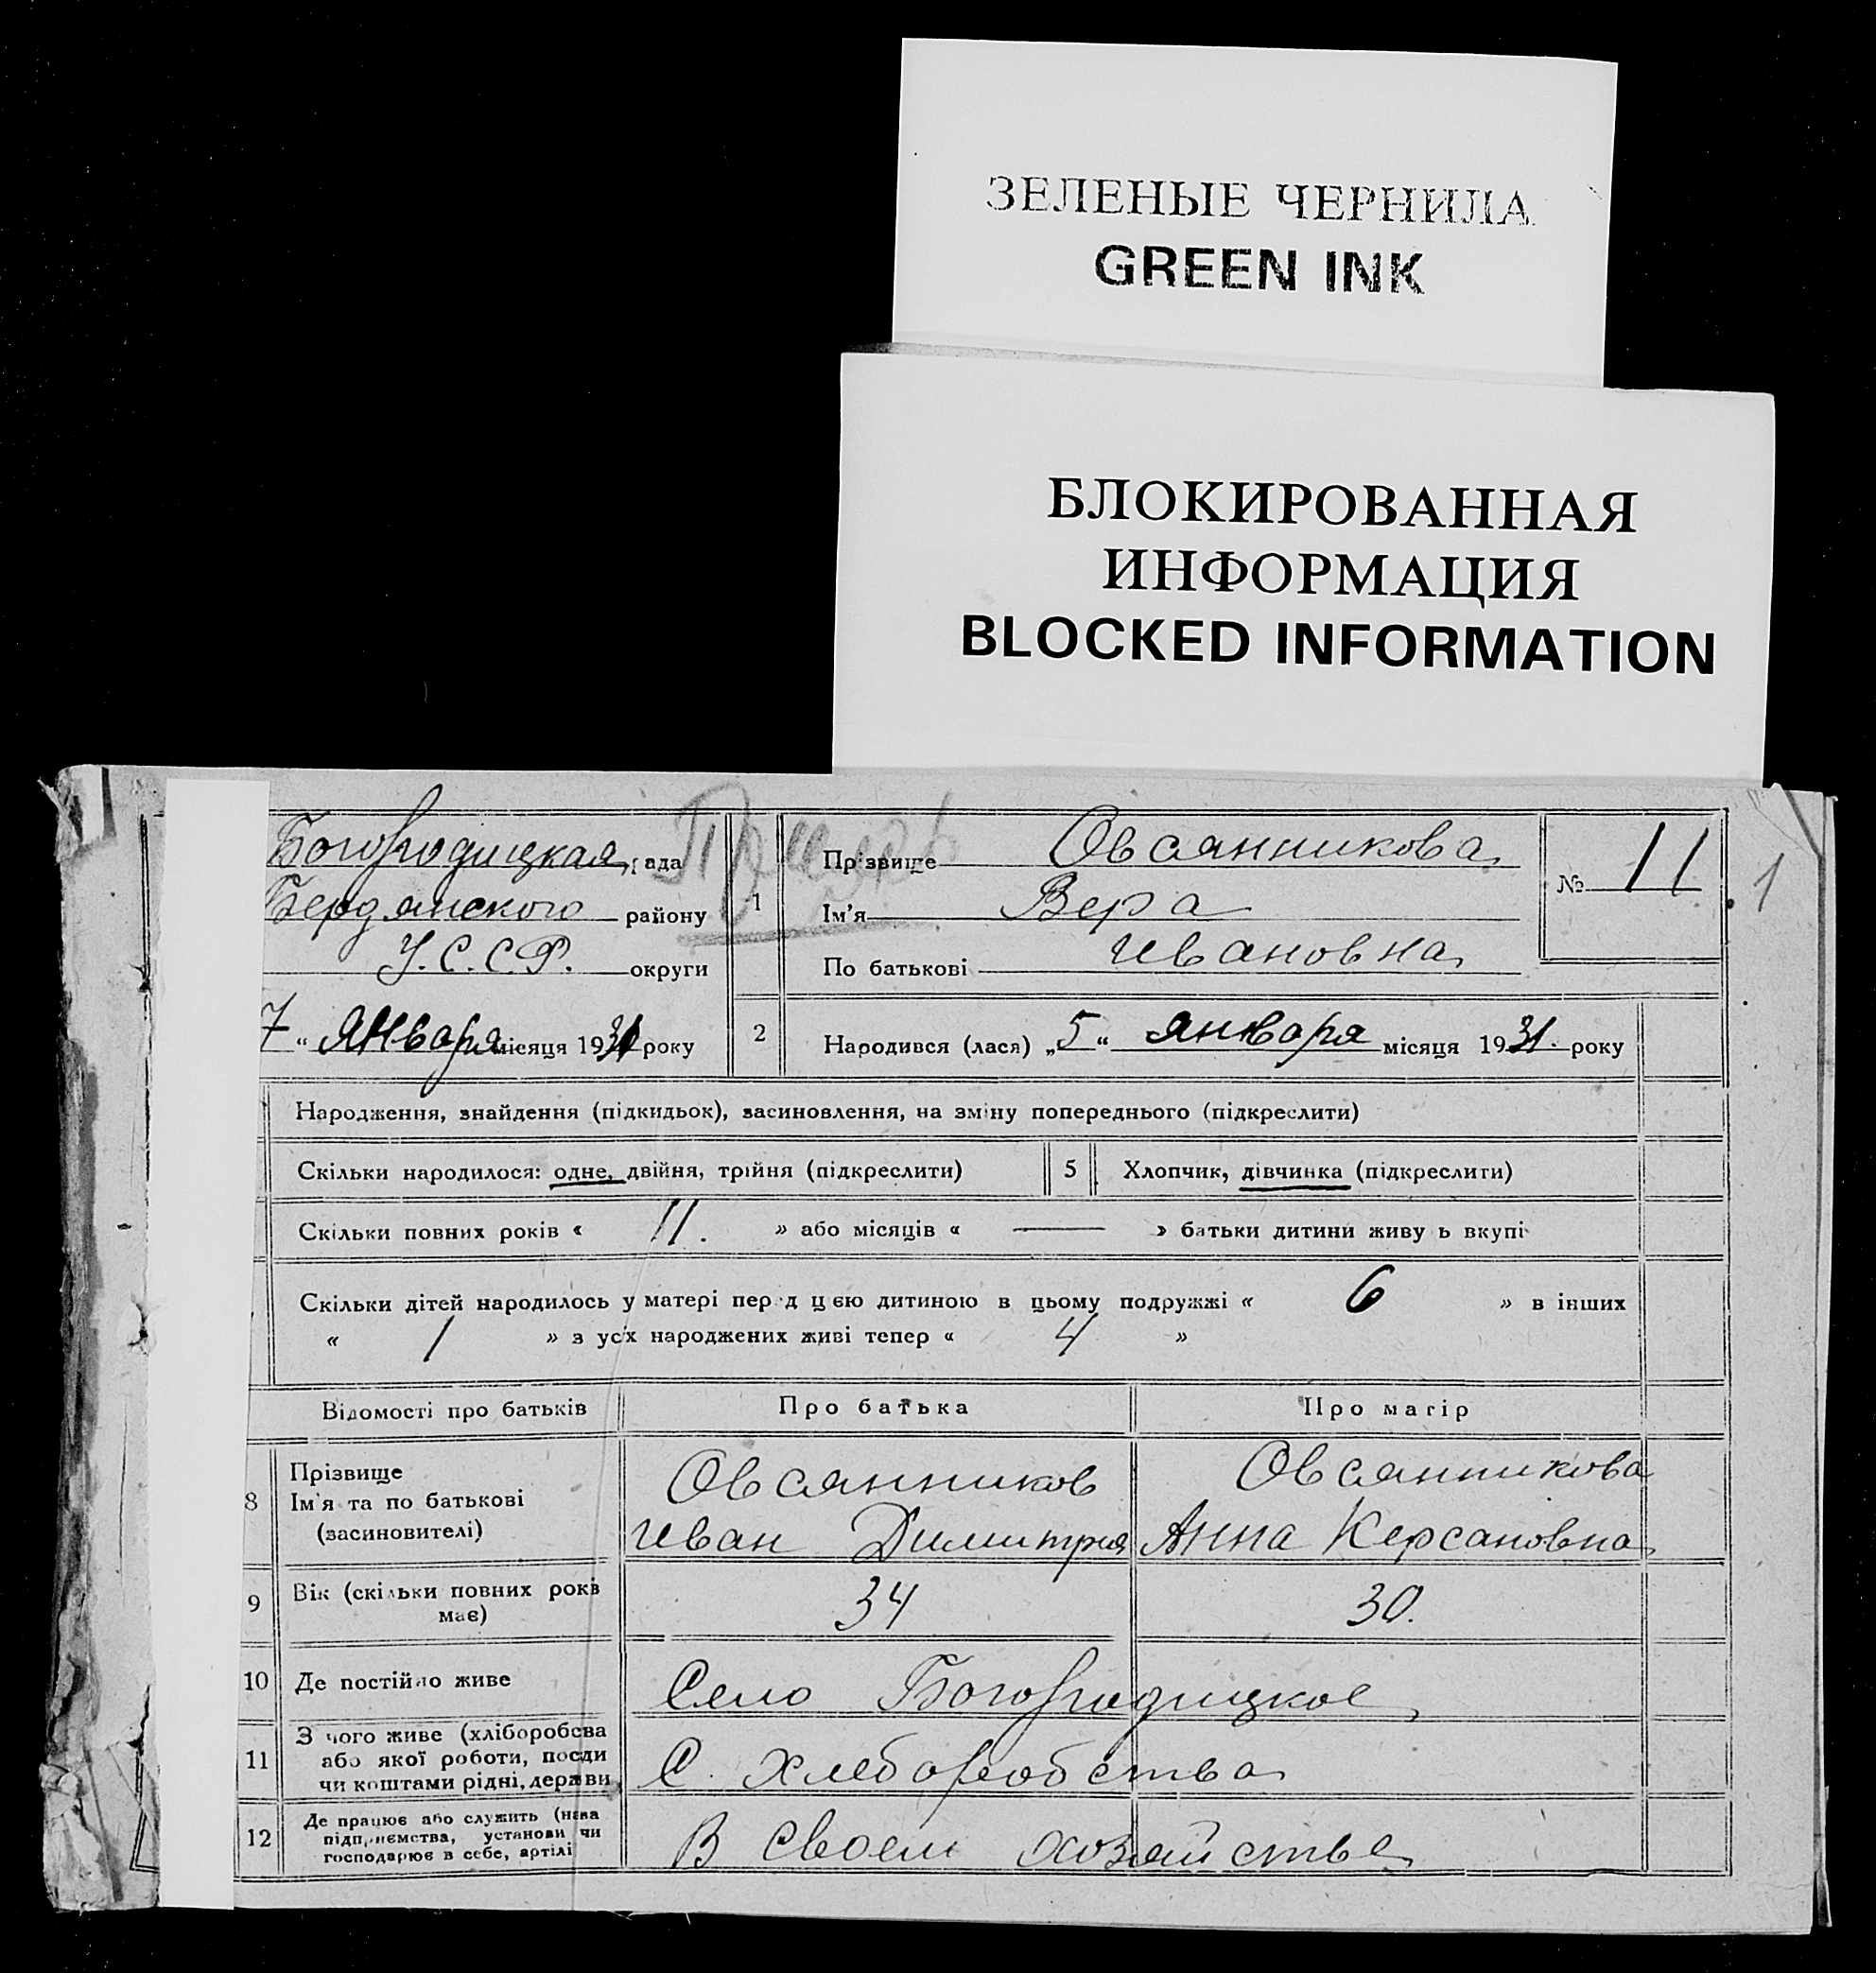 ЗЕЛЕНЫЕ ЧЕРНИЛА
GREEN INK
БЛОКИРОВАННАЯ
ИНФОРМАЦИЯ
BLOCKED INFORMATION
Богородицкая рада
Бердянского району
У.С.С.Р. округи
7 " Января місяця 1931 року
1
Прізвище Овсянникова
Ім'я Вера
По батькові Ивановна
№ 11
1
2
Народився (лася) „5" января місяця 1931. року
Народження, знайдення (підкидьок), засиновлення, на зміну попереднього (підкреслити)
Скільки народилося: одне, двійня, трійня (підкреслити) 5 Хлопчик, дівчинка (підкреслити)
Скільки повних років « 11. » або місяців « — » батьки дитини живу ь вкупі
Скільки дітей народилось у матері перед цією дитиною в цьому подружжі « 6 » в інших
« 1 » з усіх народжених живі тепер « 4 »
Відомості про батьків Про батька Про матір
8 Прізвище
Ім'я та по батькові
(засиновителі)
Овсянников
Иван Димитрия
Овсянникова
Анна Керсановна
9 Вік (скільки повних років
має)
34 30.
10 Де постійно живе Село Богородицкое
11 З чого живе (хліборобсва
або якої роботи, посди
чи коштами рідні, держви
С хлеборобства
12 Де працює або служить (нава
підприємства, установи чи
господарює в себе, артілі
В своем хозяйстве